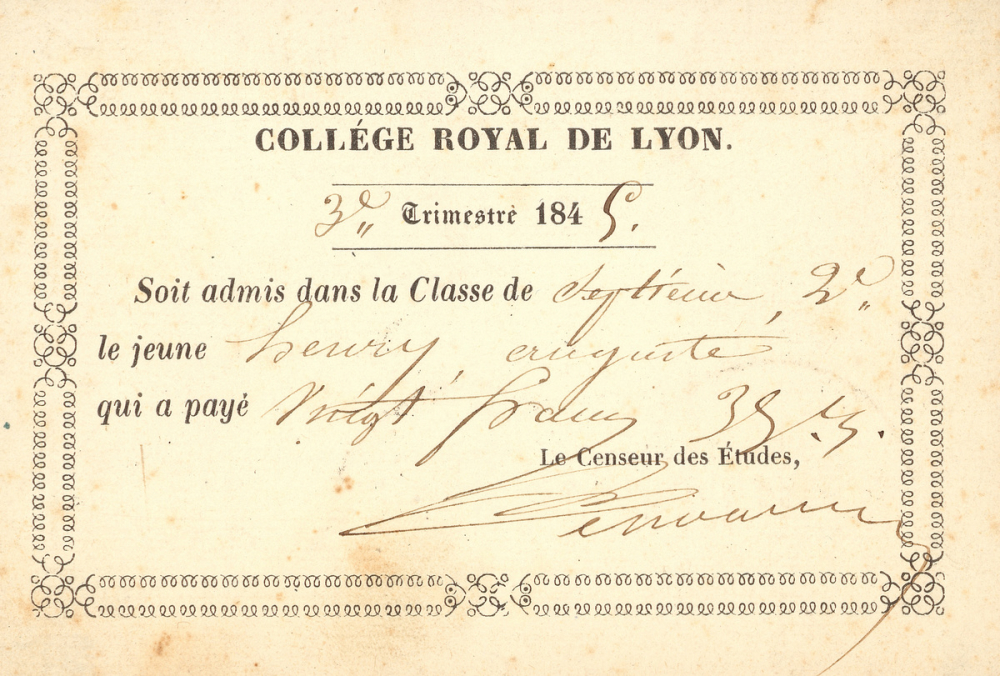 COLLÉGE ROYAL DE LYON.
3e Trimestre 1845.
Soit admis dans la Classe de Septième, 2e
le jeune henry auguste
qui a payé Vingt francs
Le Censeur des Études,